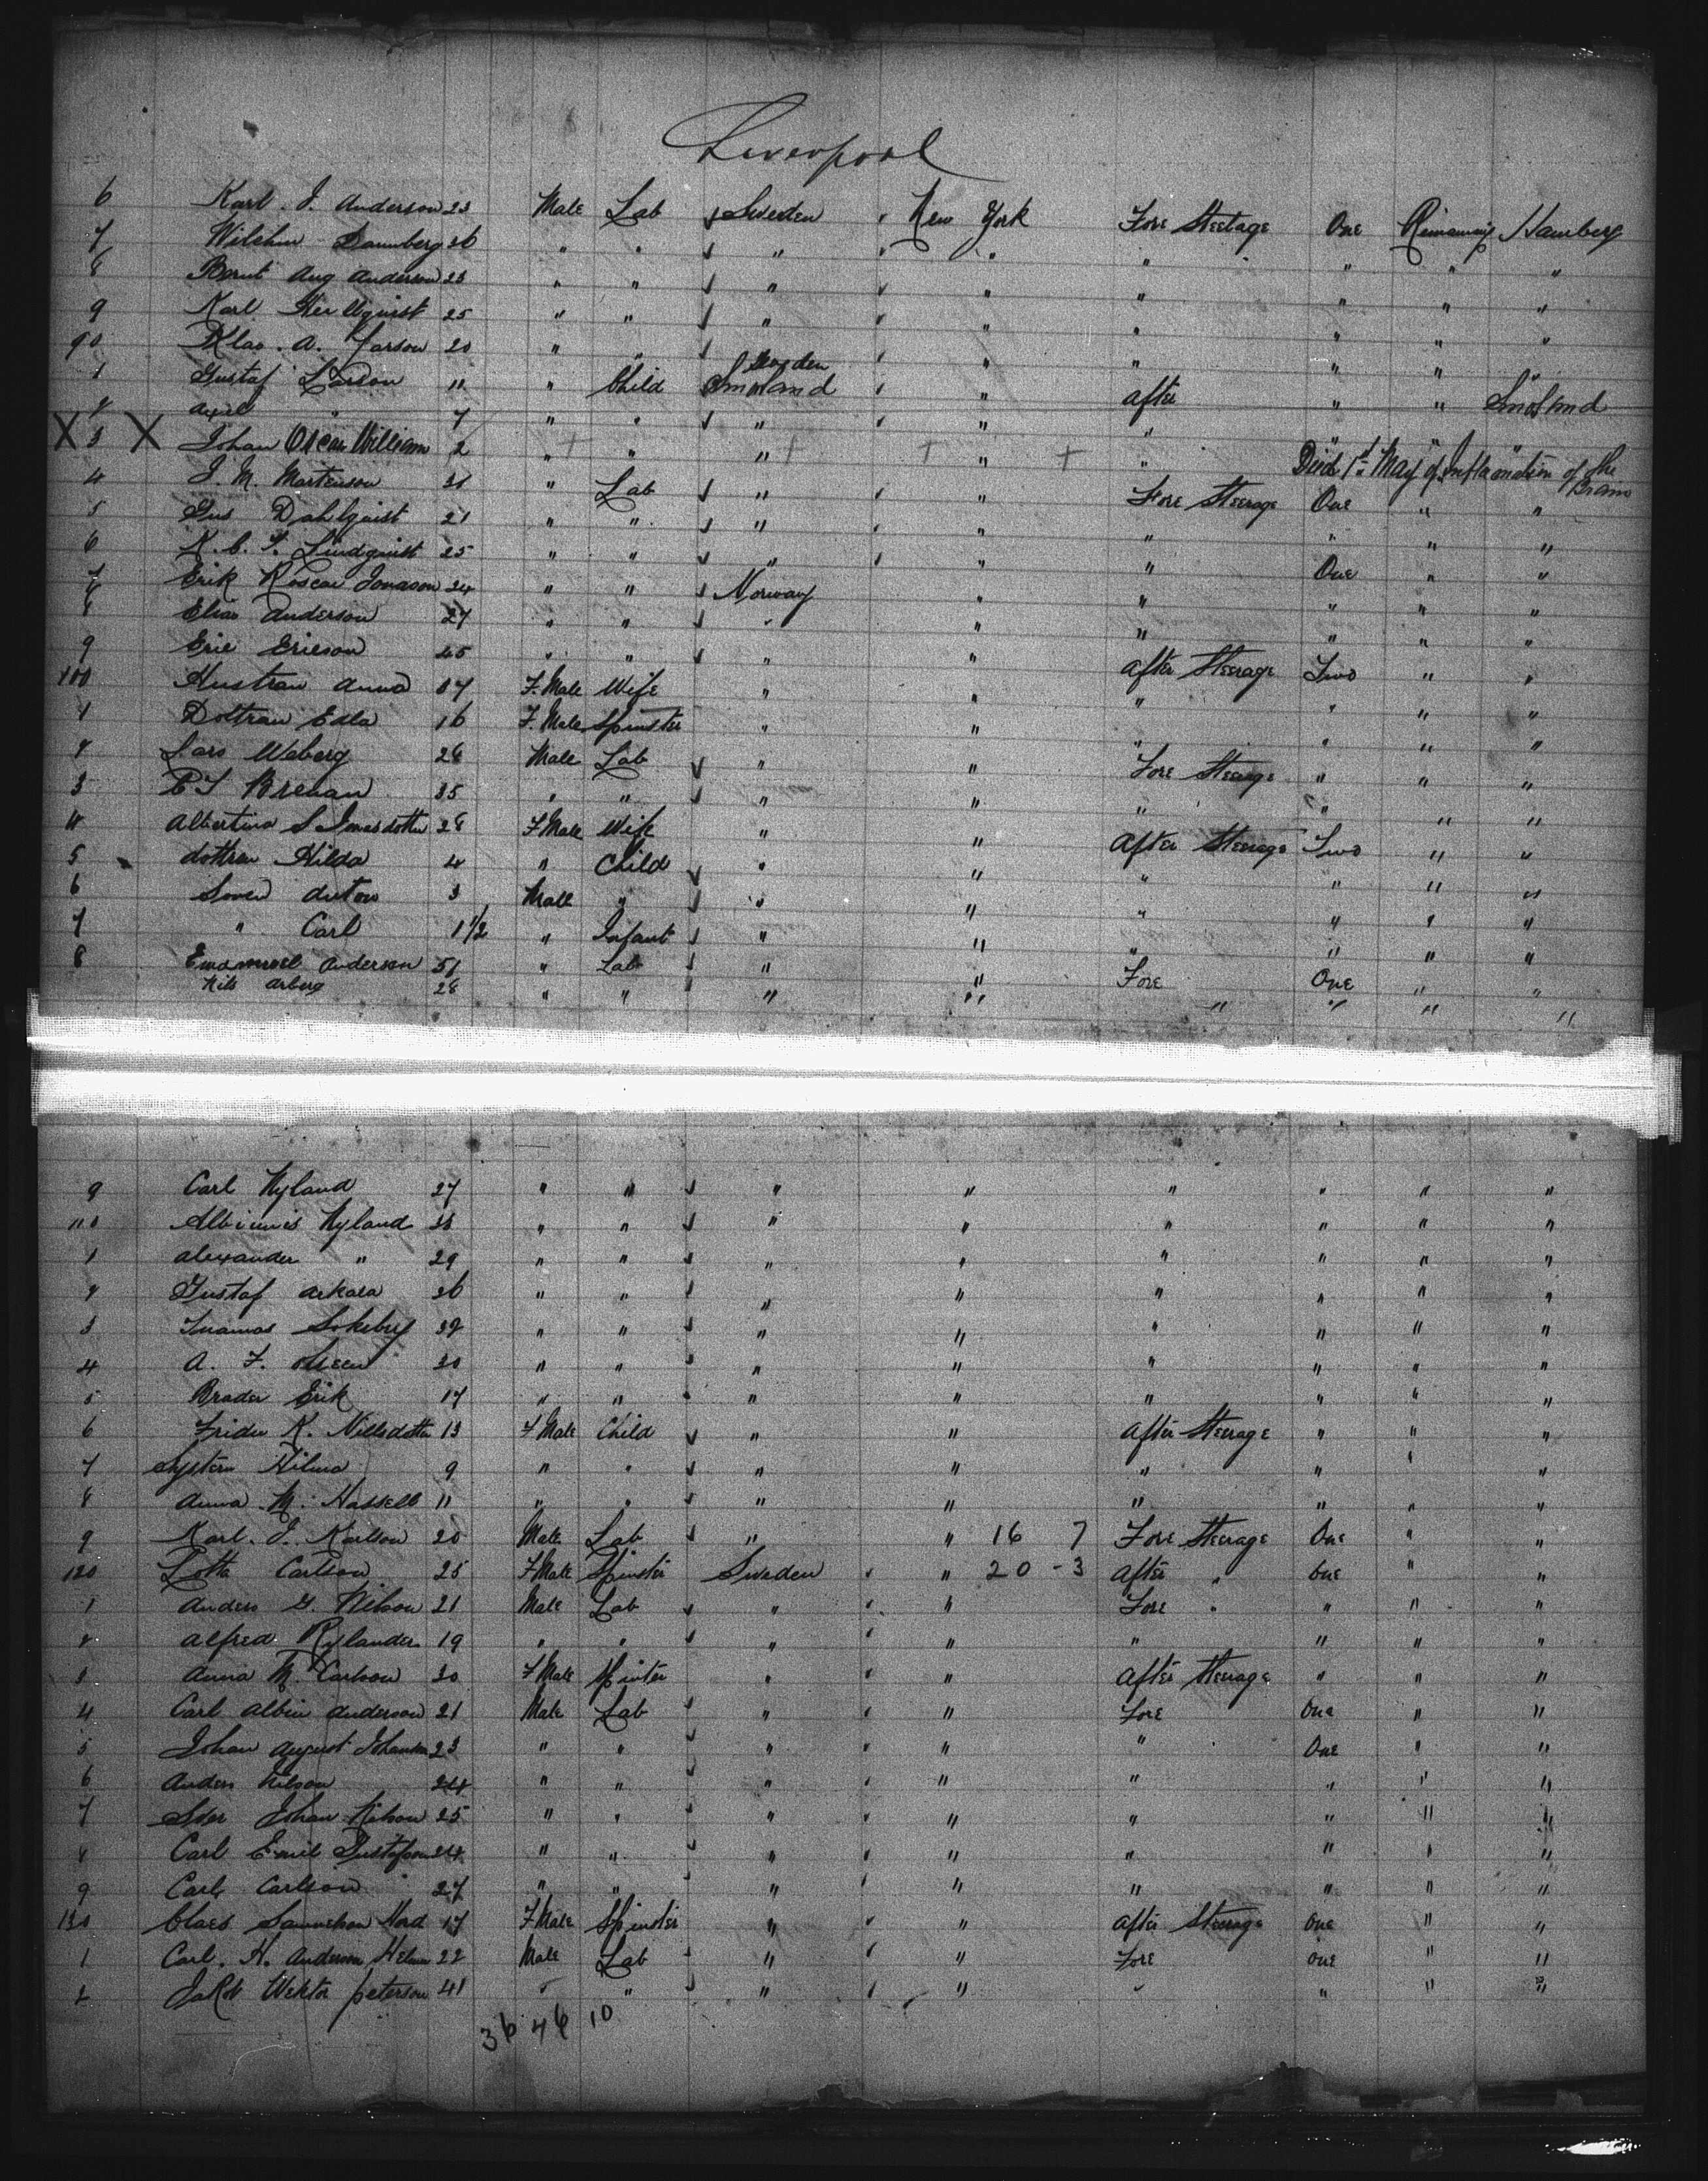 Liverpool
6 Karl. J. Anderson 23 Male Lab Sweden " New York Fore Steerage One Remaining Hamberg
7 Wilehm Dannberg 26 " " " " " " " " "
8 Bernt Aug Anderson 23 " " " " " " " " "
9 Karl Hellquist 25 " " " " " " " " "
90 Klas. A. Larson 20 " " " " " " " " "
1 Gustaf Larson 11 " Child Sweden Smoland " " After " " Smoland
2 Axel " 7 " " " " " " " " "
X 3 X Johan Oscar William 2 " " " " " Died 1st May of Inflamation of the Brain
4 J. M. Martenson 31 " Lab " " " Fore Steerage One " "
5 Gus Dahlquist 21 " " " " " " " " "
6 K. C. F. Lindquist 25 " " " " " " One " "
7 Erik Koscar Jonason 24 " " Norway " " " " "
8 Elias Anderson 27 " " " " " " " "
9 Eric Ericson 45 " " " " After Steerage Two " "
100 Hustran Anna 47 F. Male Wife " " " " " "
1 Dottran Edla 16 F. Male Spinster " " " " " "
2 Lars Weberg 28 Male Lab " " Fore Steerage " " "
3 35 " " " " " " " "
4 Albertina S 28 F Male Wife " " After Steerage Two " "
5 dottran Hilda 4 " Child " " " " " "
6 Sonen Anton 3 Male " " " " " " "
7 " Carl 1 1/2 " Infant " " " " " "
8 Emanuel Anderson 51 " Lab " " Fore One " "
Nils Arberg 28 " " " " " " " "
9 Carl Nyland 27 " " " " " " " "
110 Nyland 33 " " " " " " " "
1 Alexander " 29 " " " " " " " "
2 Gustaf Arkala 26 " " " " " " " "
3 32 " " " " " " " "
4 A. F. 30 " " " " " " " "
5 Broder Erik 17 " " " " " " " "
6 Frida K. Nillsdotter 13 F Male Child " " After Steerage " " "
7 Systern Hilma 9 " " " " " " " "
8 Anna M. Hassell 11 " " " " " " " "
9 Karl. J. Karlson 20 Male Lab " " 16 7 Fore Steerage One " "
120 Lotta Carlson 25 F Male Spinster Sweden " " 20 - 3 After " One " "
1 Anders G. Nilson 21 Male Lab " " " Fore " " " "
2 Alfred Rylander 19 " " " " " " " " "
3 Anna M. Carlson 30 F Male Spinster " " After Steerage " " "
4 Carl Albin Anderson 21 Male Lab " " " Fore One " "
5 Johan August Johanson 23 " " " " " " One " "
6 Anders Nilson 24 " " " " " " " " "
7 Johan Nilson 25 " " " " " " " " "
8 Carl Emil Gustafson 24 " " " " " " " " "
9 Carl Carlson 27 " " " " " " " " "
130 Claes Samuelson Nord 17 F Male Spinster " " " After Steerage One " "
1 Carl. H. Anderson 22 Male Lab " " " Fore One " "
2 Peterson 41 " " " " " " " " "
36 46 10